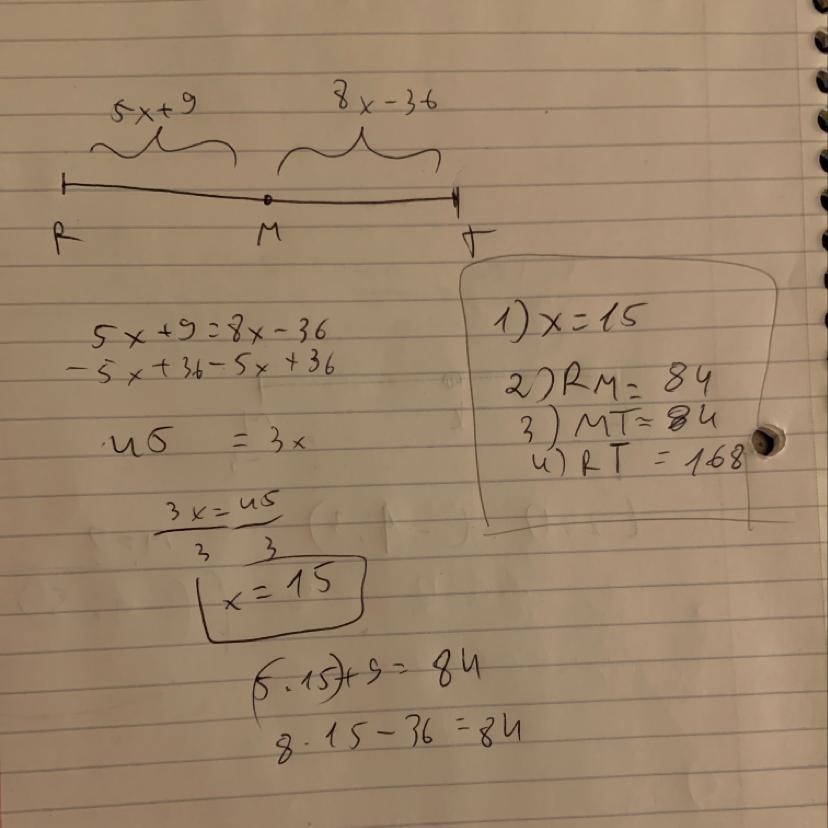 5x+9 8x-36
R M T
5x+9=8x-36
-5x+36-5x+36
45 = 3x
3x=45
3 3
x=15
(5.15)+9=84
8.15-36=84
1) x=15
2) RM=84
3) MT=84
4) RT=168